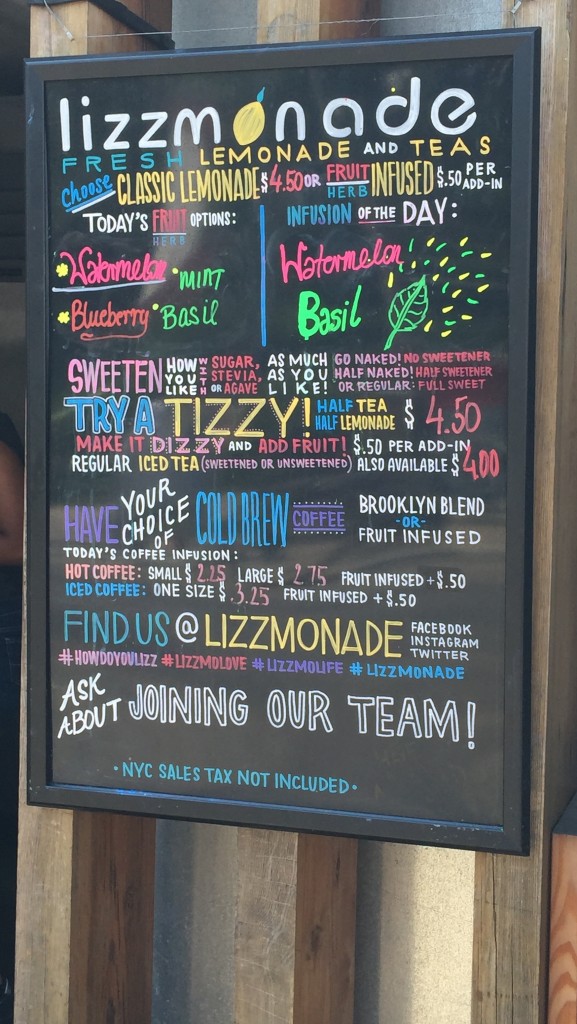 lizzmonade
FRESH LEMONADE AND TEAS
Choose CLASSIC LEMONADE $4.50 OR FRUIT HERB INFUSED $.50 PER ADD-IN
TODAY'S FRUIT HERB OPTIONS:
Watermelon • MINT
Blueberry • Basil
INFUSION OF THE DAY:
Watermelon
Basil
SWEETEN HOW YOU LIKE WITH SUGAR, STEVIA, OR AGAVE AS MUCH AS YOU LIKE!
GO NAKED! NO SWEETENER
HALF NAKED! HALF SWEETENER
OR REGULAR: FULL SWEET
TRY A TIZZY! HALF TEA HALF LEMONADE $4.50
MAKE IT DIZZY AND ADD FRUIT! $.50 PER ADD-IN
REGULAR ICED TEA (SWEETENED OR UNSWEETENED) ALSO AVAILABLE $4.00
HAVE YOUR CHOICE OF COLD BREW COFFEE BROOKLYN BLEND -OR- FRUIT INFUSED
TODAY'S COFFEE INFUSION:
HOT COFFEE: SMALL $2.25 LARGE $2.75 FRUIT INFUSED +$.50
ICED COFFEE: ONE SIZE $.3.25 FRUIT INFUSED +$.50
FIND US @ LIZZMONADE FACEBOOK INSTAGRAM TWITTER
#HOWDOYOULIZZ #LIZZMOLOVE #LIZZMOLIFE #LIZZMONADE
ASK ABOUT JOINING OUR TEAM!
• NYC SALES TAX NOT INCLUDED •